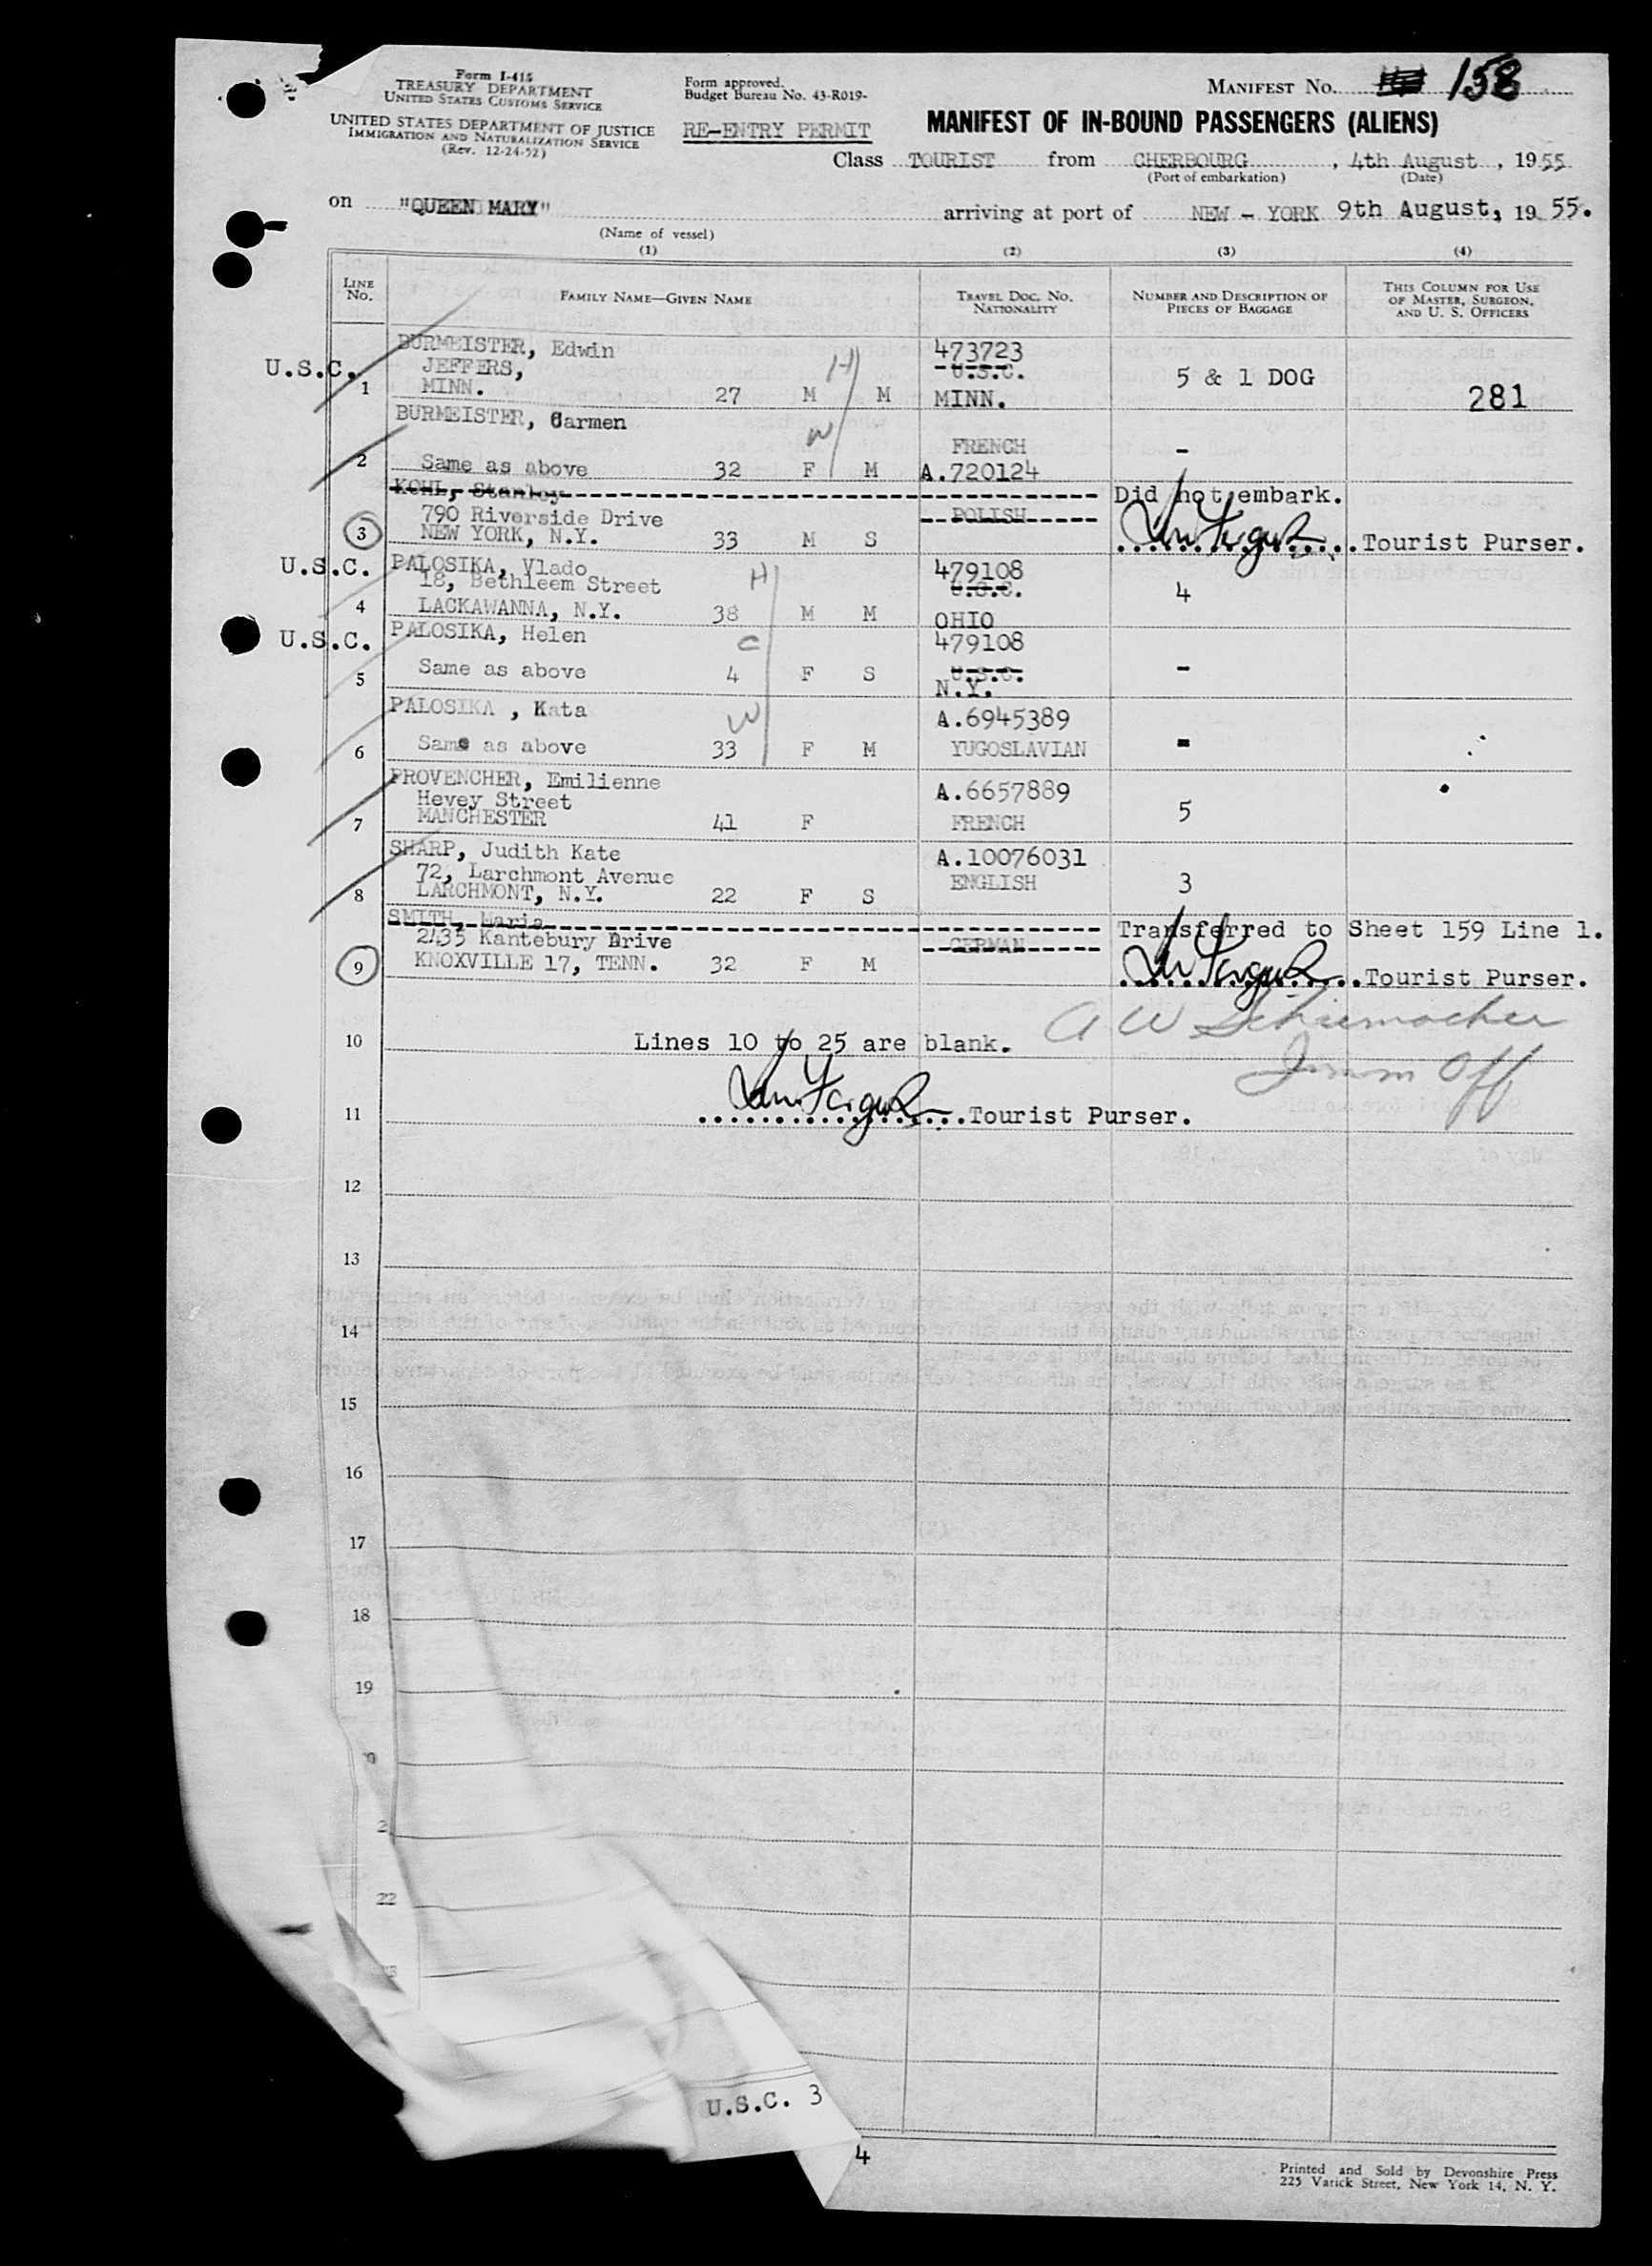 Form I-415
TREASURY DEPARTMENT
UNITED STATES CUSTOMS SERVICE
UNITED STATES DEPARTMENT OF JUSTICE
IMMIGRATION AND NATURALIZATION SERVICE
(Rev. 12-24-52)
Form approved.
Budget Bureau No. 43-R019-
RE-ENTRY PERMIT
MANIFEST NO. 158
MANIFEST OF IN-BOUND PASSENGERS (ALIENS)
Class TOURIST from CHERBOURG, 4th August, 1955
(Port of embarkation) (Date)
on "QUEEN MARY" arriving at port of NEW - YORK 9th August, 1955.
(Name of vessel)
(1) (2) (3) (4)
LINE NO.
FAMILY NAME—GIVEN NAME
TRAVEL DOC. NO. NATIONALITY
NUMBER AND DESCRIPTION OF PIECES OF BAGGAGE
THIS COLUMN FOR USE OF MASTER, SURGEON, AND U. S. OFFICERS
BURMEISTER, Edwin 473723
U.S.C. JEFFERS, H U.S.C. 5 & 1 DOG
1 MINN. 27 M M MINN. 281
BURMEISTER, Carmen
W FRENCH -
2 Same as above 32 F M A.720124
KOHL, Stanley Did not embark.
790 Riverside Drive POLISH
3 NEW YORK, N.Y. 33 M S Tourist Purser.
U.S.C. PALOSIKA, Vlado 479108
18, Bethleem Street H U.S.C. 4
4 LACKAWANNA, N.Y. 38 M M OHIO
U.S.C. PALOSIKA, Helen C 479108
5 Same as above 4 F S U.S.C. -
N.Y.
PALOSIKA , Kata W A.6945389
6 Same as above 33 F M YUGOSLAVIAN -
PROVENCHER, Emilienne A.6657889
Hevey Street 5
7 MANCHESTER 41 F FRENCH
SHARP, Judith Kate A.10076031
72, Larchmont Avenue ENGLISH 3
8 LARCHMONT, N.Y. 22 F S
SMITH, Maria Transferred to Sheet 159 Line 1.
2435 Kantebury Drive GERMAN
9 KNOXVILLE 17, TENN. 32 F M Tourist Purser.
A W Schiemacher
10 Lines 10 to 25 are blank.
Imm Off
11 Tourist Purser.
12
13
14
15
16
17
18
19
22
U.S.C. 3
4
Printed and Sold by Devonshire Press
225 Varick Street, New York 14, N. Y.